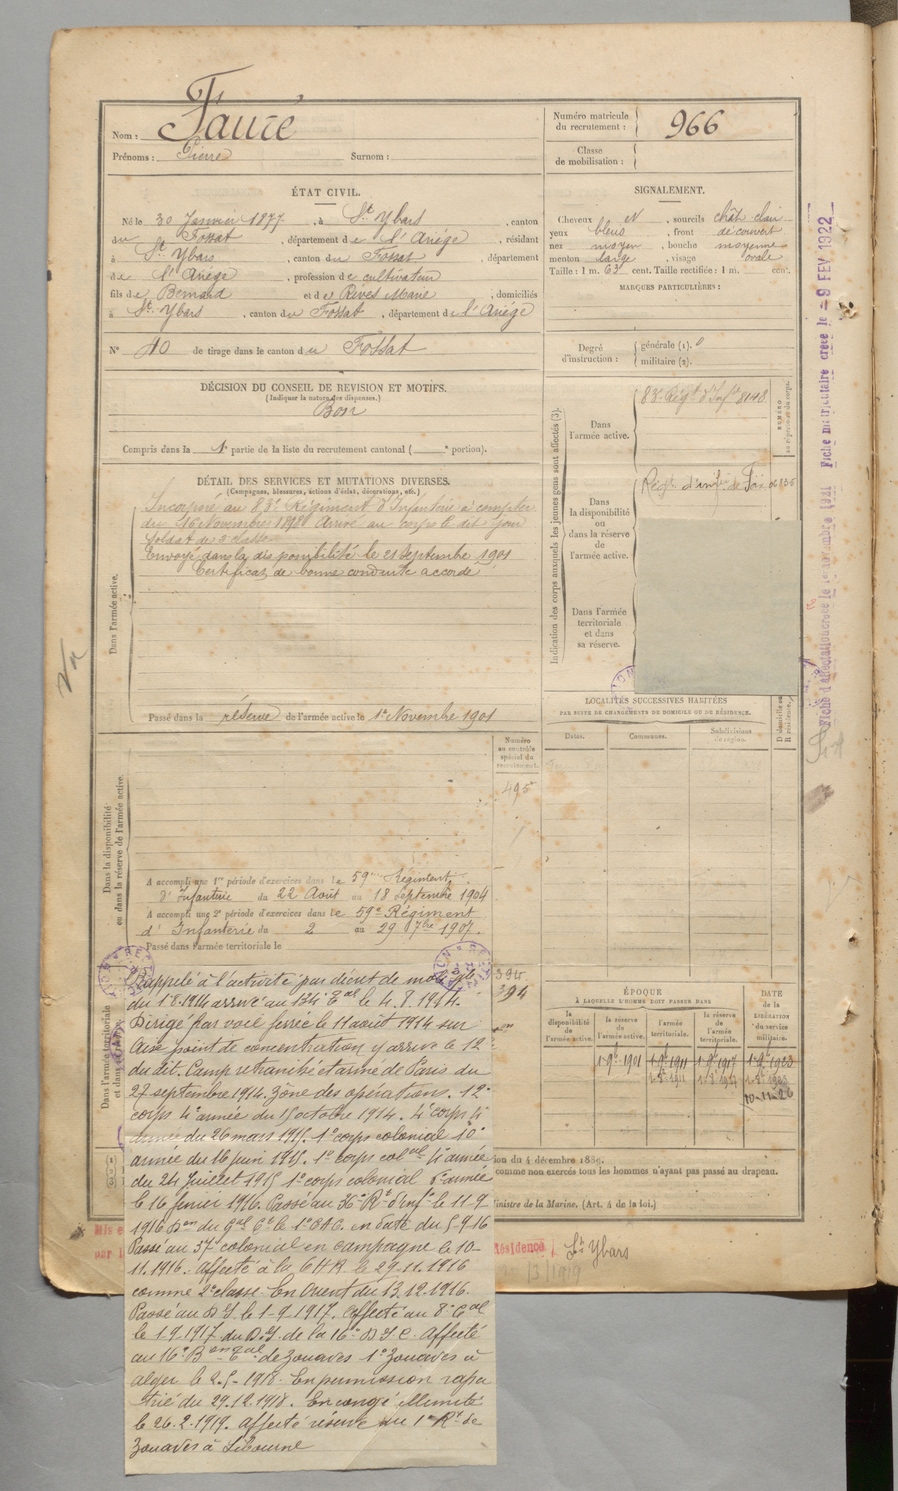 Nom : Fauré
Prénoms : Pierre Surnom :
Numéro matricule du recrutement : 966
Classe de mobilisation :
ÉTAT CIVIL.
Né le 30 Janvier 1877, à St Ybars, canton
du Fossat, département de l'Ariége, résidant
à St Ybars, canton du Fossat, département
de l'Ariége, profession de cultivateur
fils de Bernard et de Rives Marie, domiciliés
à St Ybars, canton du Fossat, département de l'Ariége
N° 40 de tirage dans le canton du Fossat
SIGNALEMENT.
Cheveux N, sourcils chât clair
yeux bleus, front découvert
nez moyen, bouche moyenne
menton large, visage ovale
Taille : 1 m. 62 cent. Taille rectifiée : 1 m. cent.
MARQUES PARTICULIÈRES :
Degré d'instruction : générale (1). 0
militaire (2).
DÉCISION DU CONSEIL DE REVISION ET MOTIFS.
(Indiquer la nature des dispenses.)
Bon
Compris dans la 1e partie de la liste du recrutement cantonal ( e portion).
DÉTAIL DES SERVICES ET MUTATIONS DIVERSES.
(Campagnes, blessures, actions d'éclat, décorations, etc.)
Dans l'armée active.
Incorporé au 83e Régiment d'Infanterie à compter
du 16 Novembre 1898 Arrivé au corps le dit jour
soldat de 2e classe
Envoyé dans la disponibilité le 21 septembre 1901
Certificat de bonne conduite accordé
Passé dans la réserve de l'armée active le 1er Novembre 1901
Indication des corps auxquels les jeunes gens sont affectés (3).
Dans l'armée active.
83e Régt d'Infie 8148
NUMÉRO au répertoire du corps.
Dans la disponibilité ou dans la réserve de l'armée active.
Régt d'infie de Foix
Dans l'armée territoriale et dans sa réserve.
LOCALITÉS SUCCESSIVES HABITÉES
PAR SUITE DE CHANGEMENTS DE DOMICILE OU DE RÉSIDENCE.
Dates. Communes. Subdivisions de région.
D domicile ou R résidence.
Numéro au contrôle spécial du recrutement.
495
Dans la disponibilité ou dans la réserve de l'armée active.
A accompli une 1re période d'exercices dans le 59e Régiment
d'Infanterie du 22 Août au 18 septembre 1904
A accompli une 2e période d'exercices dans le 59e Régiment
d'Infanterie du 2 au 29 7bre 1907.
Passé dans l'armée territoriale le
Dans l'armée territoriale et dans
Rappelé à l'activité par décret de mob gle
du 1.8.1914 arrivé au 134e Eal le 4.8.1914.
Dirigé par voie ferrée le 11 août 1914 sur
Oise point de concentration y arrive le 12
du dit. Camp retranché et armée de Paris du
27 septembre 1914. Zône des opérations. 12e
corps 4e armée du 15 octobre 1914. 4e corps 4e
armée du 26 mars 1915. 1er corps colonial 10e
armée du 16 juin 1915. 1er corps colal 4e armée
du 24 Juillet 1915 1er corps colonial armée
le 16 fevrier 1916. Passé au 36e Rt d'Infie le 11.9
1916 Don du Gal Ct le 1er CAC. en date du 5.9.16
Passé au 37e colonial en campagne le 10-
11.1916. affecté à la CHR le 29.11.1916
comme 2e classe. En Orient du 13.12.1916.
Passé au D.I. le 1-9.1917. affecté au 8e Cal
le 1.9.1917 du D.I. de la 16e D I C. affecté
au 16e Bon Cal de Zouaves 1er Zouaves à
alger le 2.5-1918. En permission rapa
trié du 29.12.1918. En congé illimité
le 26.2.1919. affecté réserve au 1er Rt de
Zouaves à Libourne
394
ÉPOQUE
À LAQUELLE L'HOMME DOIT PASSER DANS
la disponibilité de l'armée active. la réserve de l'armée active. l'armée territoriale. la réserve de l'armée territoriale.
DATE de la LIBÉRATION du service militaire.
1-9e 1901 1-9e 1911 1-9e 1917 1-9e 1923
10-11-26
comme non exercés tous les hommes n'ayant pas passé au drapeau.
inistre de la Marine. (Art. 4 de la loi.)
Mis e
par l
Résidence St Ybars
Fiche matriculaire créée le - 9 FEV 1922